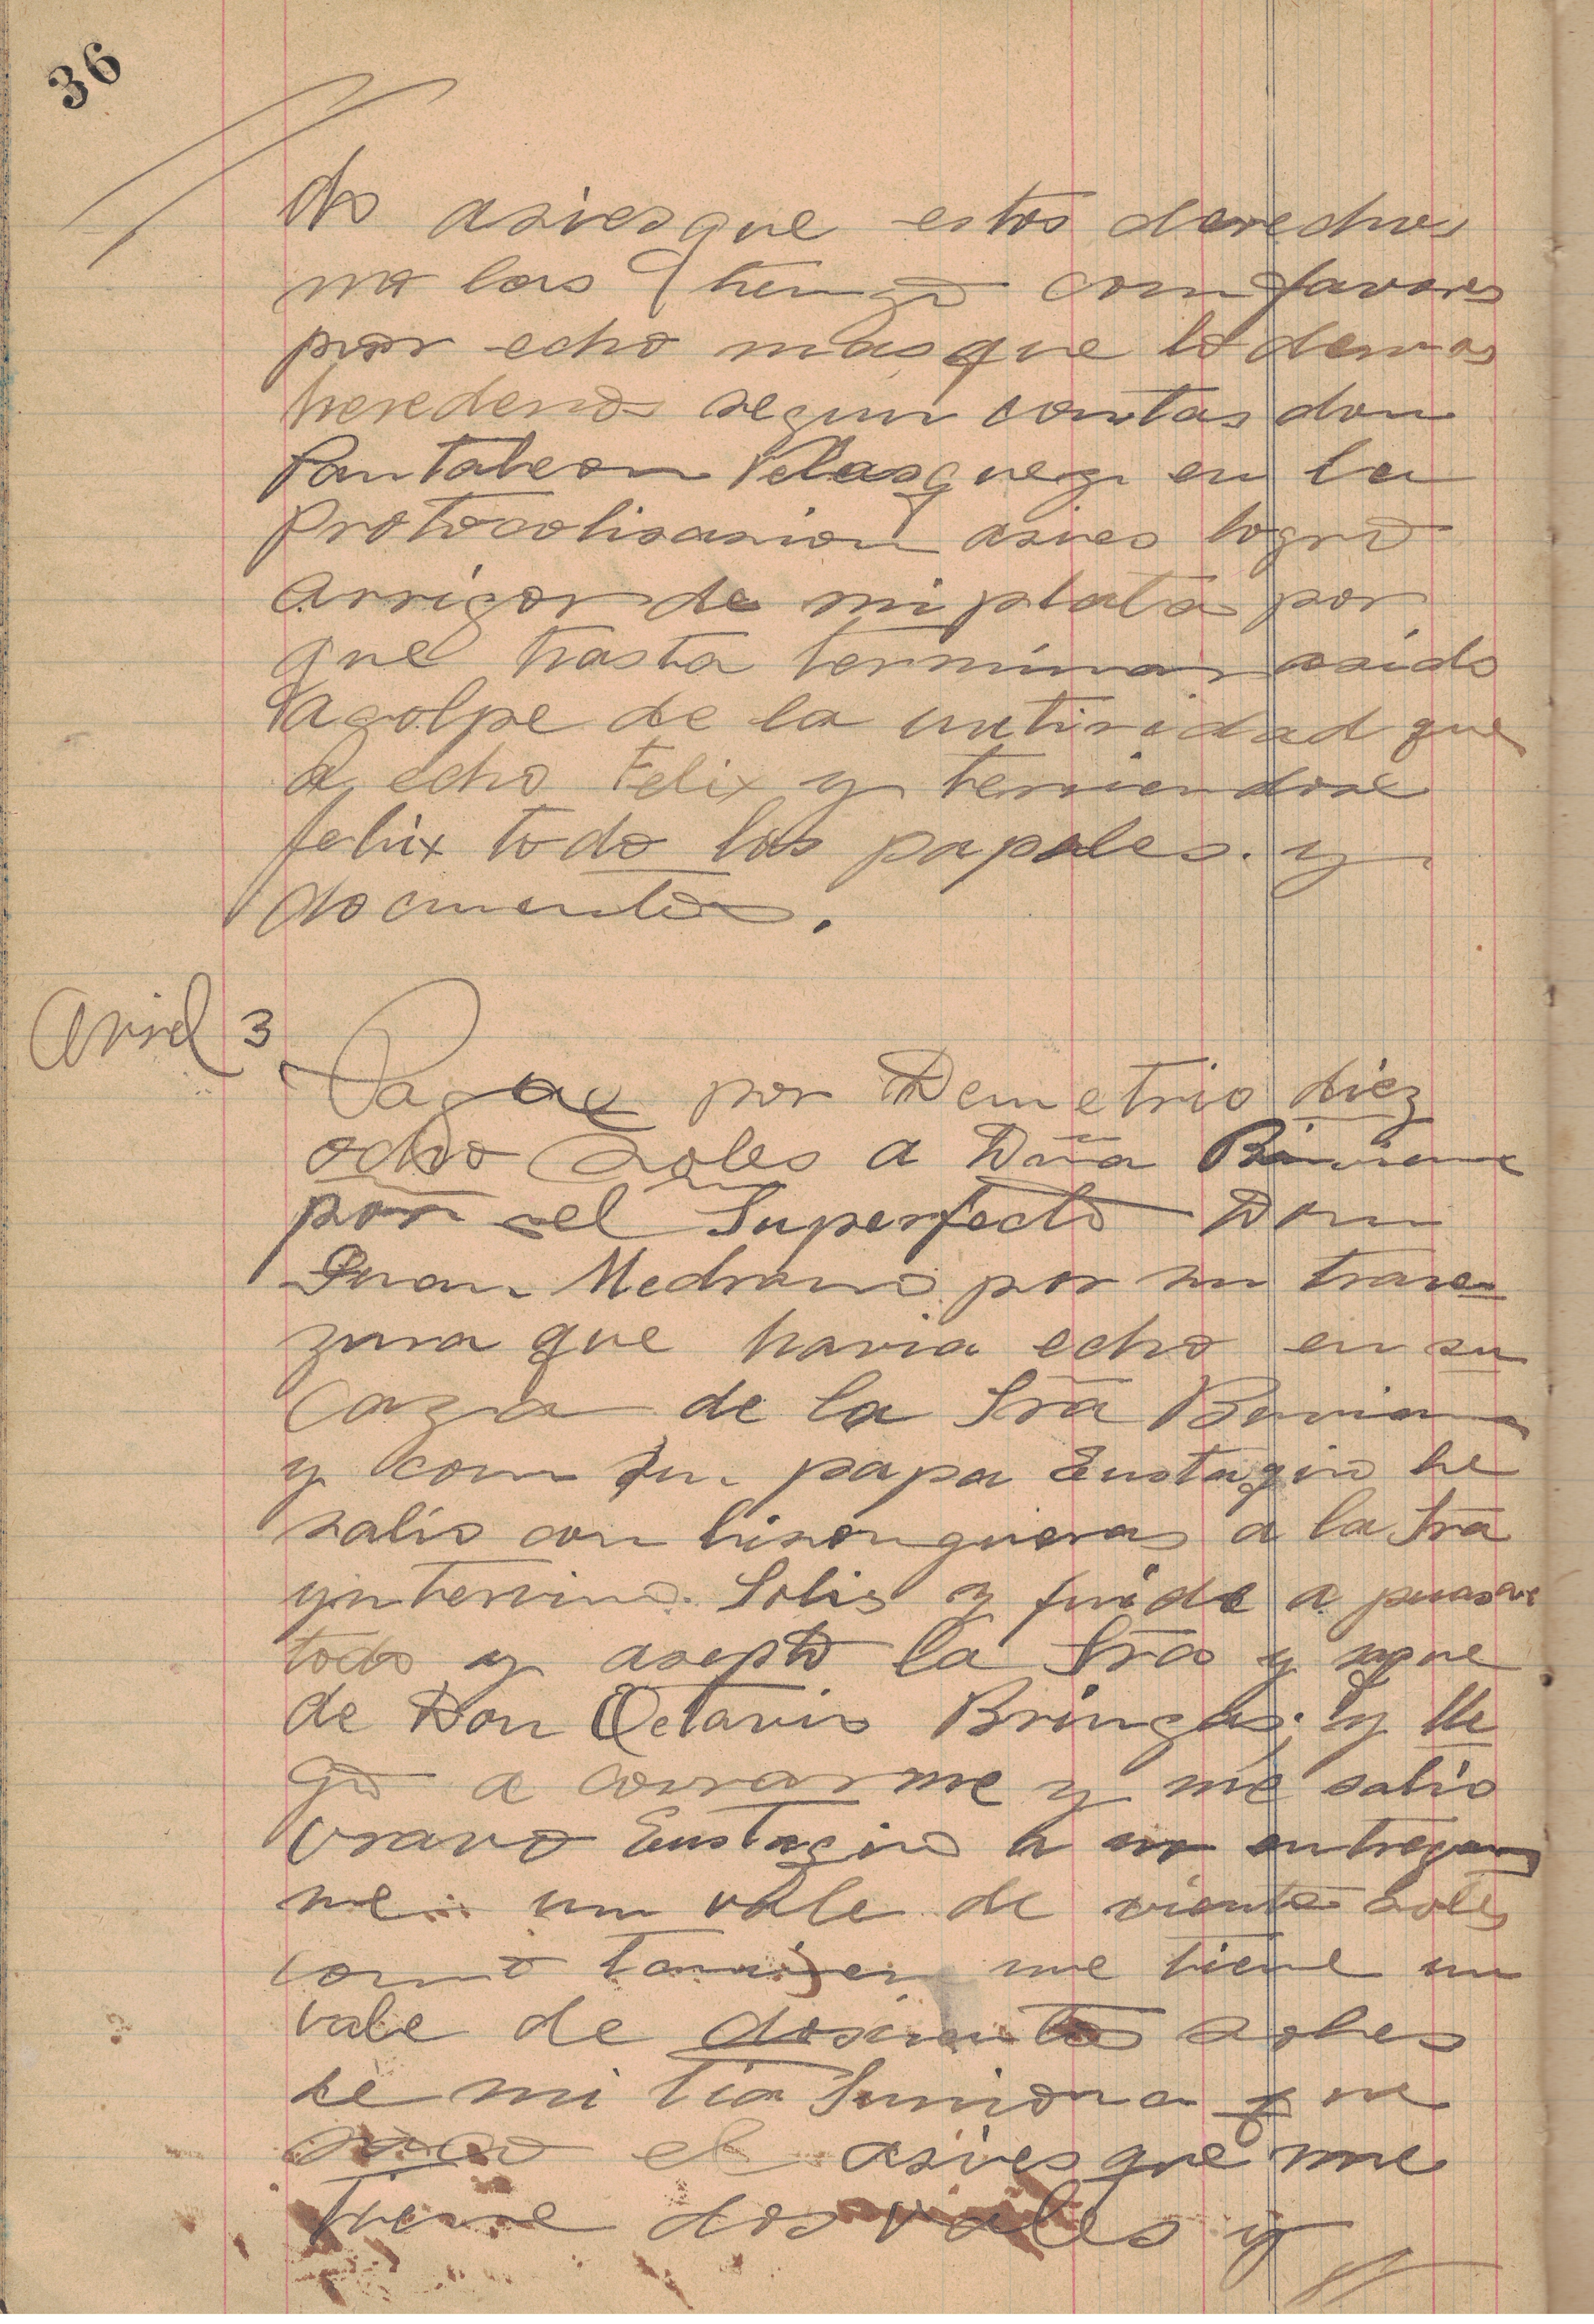 36
do asiesque estos derechos
no los tengo com favores
por echo mas que lo demas
herederos segun contas don
Pantaleon Velasquez en la
Protocolisasion asies logro
arrigor de mi plata por
que hasta terminar asido
agolpe de la autiridad que
a echo Felix y teniendose
felix todo los papeles. y
documentos.
Avril 3
Pague por Demetrio diez
ocho soles a Dña Biviana
por el Superfecto Don
Juan Medrano por un trave
zura que havia echo en su
Caza de la Sra Biviana
y com su papa Eustaqio he
salio con lisongueras a la Sra
yntervino Solis y fuide a
todo y asepto la Sra y
de Don Octavio Bringas; y lle
go a covrarme y me salio
vravo Eustaqio a no entregar
me un vale de viente soles
como tanvien me tiene un
vale de dosientos soles
de mi tia Simiona que
saco el asiesque me
tiene dos vales y